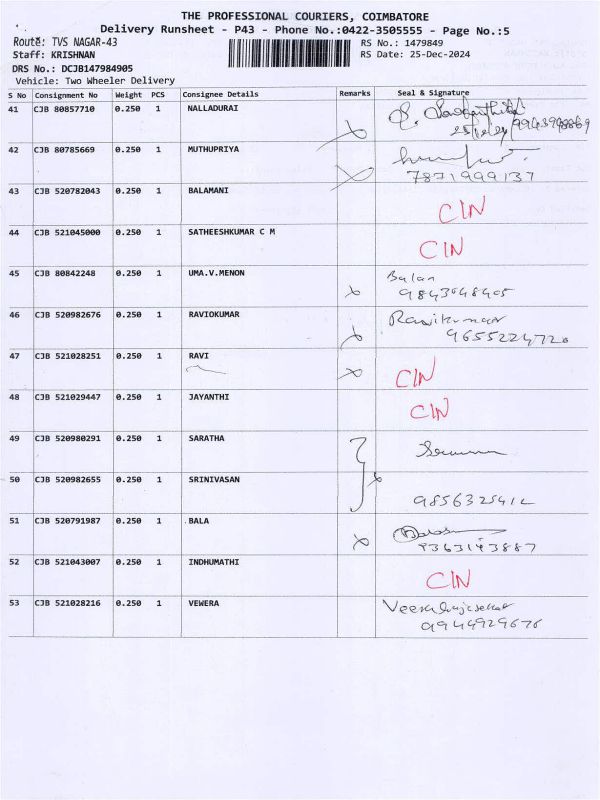 THE PROFESSIONAL COURIERS, COIMBATORE
Delivery Runsheet - P43 - Phone No.:0422-3505555 - Page No.:5
Route: TVS NAGAR-43 RS No.: 1479849
Staff: KRISHNAN RS Date: 25-Dec-2024
DRS No.: DCJB147984905
Vehicle: Two Wheeler Delivery
S No Consignment No Weight PCS Consignee Details Remarks Seal & Signature
41 CJB 80857710 0.250 1 NALLADURAI
42 CJB 80785669 0.250 1 MUTHUPRIYA
7871999137
43 CJB 520782043 0.250 1 BALAMANI
CIN
44 CJB 521045000 0.250 1 SATHEESHKUMAR C M
CIN
45 CJB 80842248 0.250 1 UMA.V.MENON Balan
9843048405
46 CJB 520982676 0.250 1 RAVIOKUMAR Ravikumar
9655224720
47 CJB 521028251 0.250 1 RAVI
CIN
48 CJB 521029447 0.250 1 JAYANTHI
CIN
49 CJB 520980291 0.250 1 SARATHA
50 CJB 520982655 0.250 1 SRINIVASAN
9856325412
51 CJB 520791987 0.250 1 BALA
9363143887
52 CJB 521043007 0.250 1 INDHUMATHI
CIN
53 CJB 521028216 0.250 1 VEWERA
9944929676